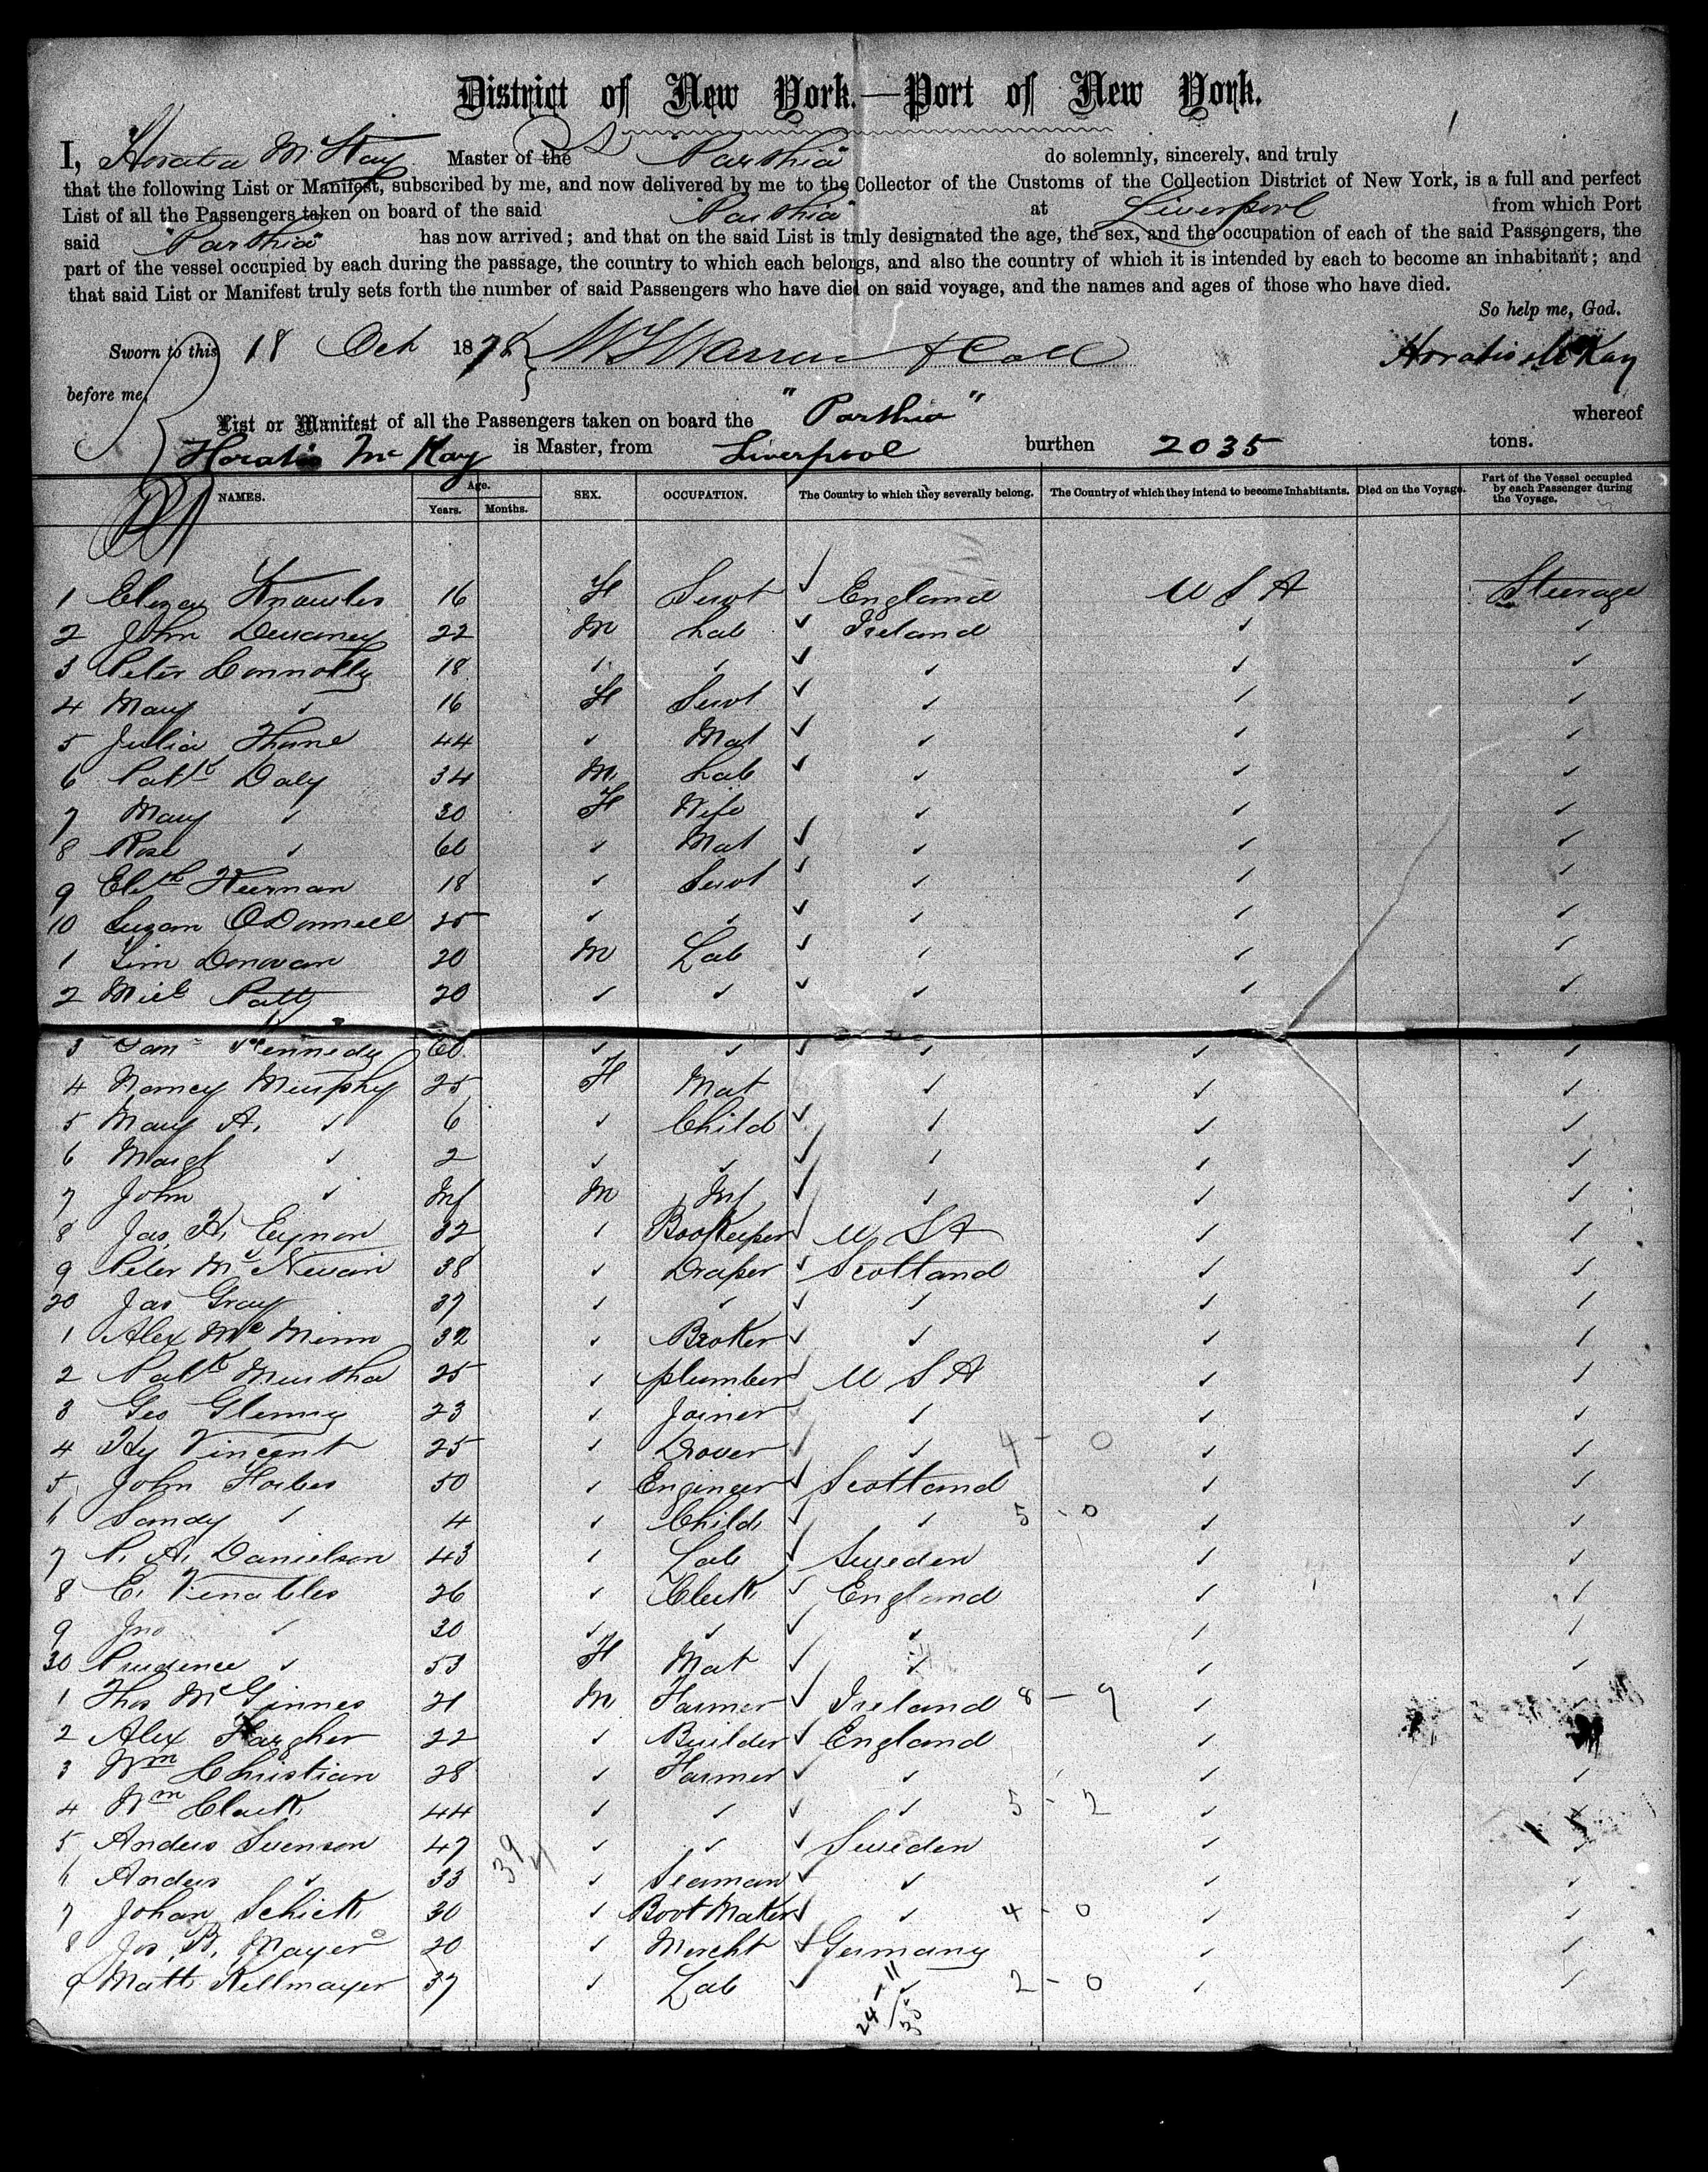 District of New York.—Port of New York.
I, Horatio McKay Master of the SS "Parthia" do solemnly, sincerely, and truly
that the following List or Manifest, subscribed by me, and now delivered by me to the Collector of the Customs of the Collection District of New York, is a full and perfect
List of all the Passengers taken on board of the said "Parthia" at Liverpool from which Port
said "Parthia" has now arrived; and that on the said List is truly designated the age, the sex, and the occupation of each of the said Passengers, the
part of the vessel occupied by each during the passage, the country to which each belongs, and also the country of which it is intended by each to become an inhabitant; and
that said List or Manifest truly sets forth the number of said Passengers who have died on said voyage, and the names and ages of those who have died.
So help me, God.
Sworn to this 18 Oct 1878 Horatio McKay
before me,
List or Manifest of all the Passengers taken on board the "Parthia" whereof
Horatio Mc Kay is Master, from Liverpool burthen 2035 tons.
NAMES. Age. Years. Months. SEX. OCCUPATION. The Country to which they severally belong. The Country of which they intend to become Inhabitants. Died on the Voyage. Part of the Vessel occupied by each Passenger during the Voyage.
1 Eliza Knowles 16 F Servt ✓ England U S A Steerage
2 John Devaney 22 M Lab ✓ Ireland ✓ ✓
3 Peter Connolly 18 ✓ ✓ ✓ ✓ ✓ ✓
4 Mary ✓ 16 F Servt ✓ ✓ ✓ ✓
5 Julia 44 ✓ Mat ✓ ✓ ✓ ✓
6 Patk Daly 34 M Lab ✓ ✓ ✓ ✓
7 Mary ✓ 30 F Wife ✓ ✓ ✓
8 Rose ✓ 60 ✓ Mat ✓ ✓ ✓ ✓
9 Elith Keernan 18 ✓ Servt ✓ ✓ ✓ ✓
10 Suzan O'Donnell 25 ✓ ✓ ✓ ✓ ✓ ✓
1 Tim Donovan 20 M Lab ✓ ✓ ✓ ✓
2 Micl Patty 20 ✓ ✓ ✓ ✓ ✓ ✓
3 Kennedy 60 ✓ ✓ ✓ ✓ ✓ ✓
4 Nancy Murphy 25 F Mat ✓ ✓ ✓
5 Mary A. ✓ 6 ✓ Child ✓ ✓ ✓ ✓
6 Margt ✓ 2 ✓ ✓ ✓ ✓ ✓ ✓
7 John ✓ Inf M Inf ✓ ✓ ✓ ✓
8 Jas. H. Eynon 32 ✓ Bookeeper ✓ U S A ✓ ✓
9 Peter Mc 38 ✓ Draper ✓ Scotland ✓ ✓
20 Jas Gray 37 ✓ ✓ ✓ ✓ ✓ ✓
1 Alex Mc Minn 32 ✓ Broker ✓ ✓ ✓ ✓
2 Patk Murtha 25 ✓ plumber ✓ U S A ✓ ✓
3 Geo Glenny 23 ✓ Joiner ✓ ✓ ✓ ✓
4 Hy Vincent 25 ✓ Drover ✓ ✓ 4 - 0 ✓ ✓
5 John Forbes 50 ✓ Engineer ✓ Scotland ✓ ✓
6 Sandy ✓ 4 ✓ Child ✓ ✓ 5 - 0 ✓ ✓
7 P. A. Danielson 43 ✓ Lab ✓ Sweden ✓ ✓
8 E. Venables 26 ✓ Clerk ✓ England ✓ ✓
9 Jno ✓ 30 ✓ ✓ ✓ ✓ ✓ ✓
30 Prudence ✓ 53 F Mat ✓ ✓ ✓ ✓
1 Thos McGinnes 21 M Farmer ✓ Ireland 8 - 9 ✓
2 Alex Fargher 22 ✓ Builder ✓ England ✓
3 Wm Christian 28 ✓ Farmer ✓ ✓ ✓ ✓
4 Wm Clark 44 ✓ ✓ ✓ ✓ 5 - 2 ✓ ✓
5 Anders Svenson 47 ✓ ✓ ✓ Sweden ✓ ✓
6 Anders ✓ 33 39/4 ✓ Seaman ✓ ✓ ✓ ✓
7 Johan Schick 30 ✓ Boot Maker ✓ ✓ 4 - 0 ✓ ✓
8 Jos. B. Mayer 20 ✓ Mercht ✓ Germany ✓ ✓
9 Matt. Kellmayer 37 ✓ Lab ✓ ✓ 2 - 0 ✓ ✓
24 - 11